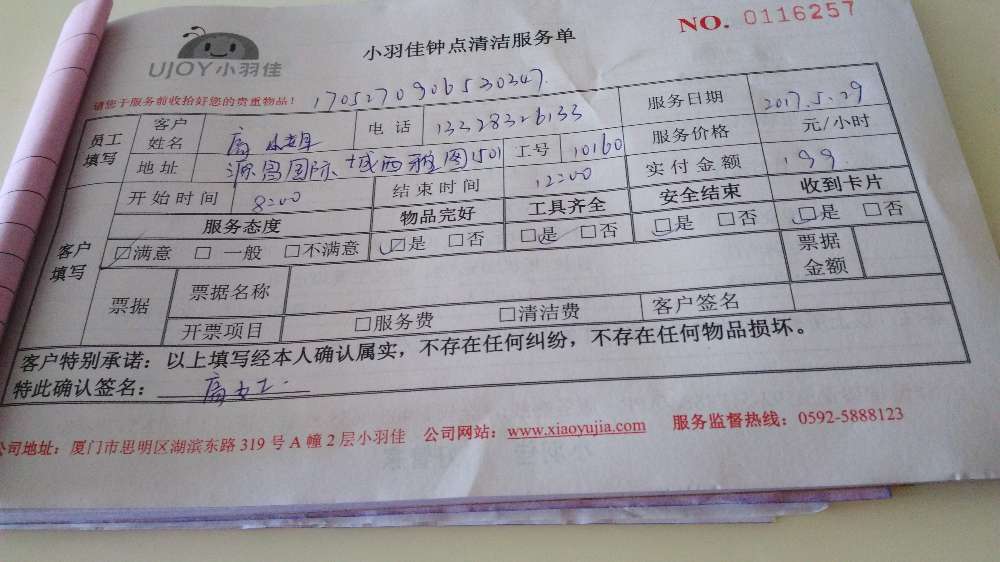 NO. 0116257
UJOY小羽佳
小羽佳钟点清洁服务单
请您于服务前收拾好您的贵重物品! 1705270906530347
员工填写 客户姓名 电话 13328326133 服务日期 2017.5.29
地址 源昌国际城西雅图1501 工号 10160 服务价格 元/小时
开始时间 8:00 结束时间 12:00 实付金额 199
客户填写 服务态度 物品完好 工具齐全 安全结束 收到卡片
☑满意 □ 一般 □不满意 ☑是 □否 ☑是 □否 ☑是 □否 ☑是 □否
票据 票据名称 票据金额
开票项目 □服务费 □清洁费 客户签名
客户特别承诺：以上填写经本人确认属实，不存在任何纠纷，不存在任何物品损坏。
特此确认签名：
公司地址：厦门市思明区湖滨东路 319 号 A 幢 2 层小羽佳 公司网站：www.xiaoyujia.com 服务监督热线：0592-5888123